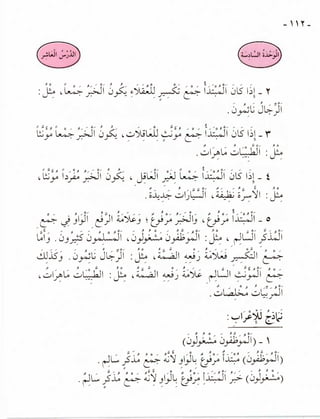 - ١١٢ -
الْوَحْدَةُ السَّادِسَةُ
الدَّرْسُ الْعَاشِرُ
٢ - إِذَا كَانَ الْمُبْتَدَأُ جَمْعَ تَكْسِيرٍ لِلْعُقَلَاءِ، يَكُونُ الْخَبَرُ جَمْعاً، مِثْلُ :
الرِّجَالُ نَائِمُونَ.
٣ - إِذَا كَانَ الْمُبْتَدَأُ جَمْعَ مُؤَنَّثٍ لِلْعَاقِلَاتِ، يَكُونُ الْخَبَرُ جَمْعاً مُؤَنَّثاً
مِثْلُ : الطَّبِيبَاتُ مَاهِرَاتٌ.
٤ - إِذَا كَانَ الْمُبْتَدَأُ جَمْعاً لِغَيْرِ الْعَاقِلِ ، يَكُونُ الْخَبَرُ مُفْرَداً مُؤَنَّثاً ،
مِثْلُ : الْأَسِرَّةُ نَظِيفَةٌ، السَّيَّارَاتُ جَدِيدَةٌ.
٥ - الْمُبْتَدَأُ مَرْفُوعٌ، وَالْخَبَرُ مَرْفُوعٌ ، وَعَلَامَةُ الرَّفْعِ الْوَاوُ فِي جَمْعِ
الْمُذَكَّرِ السَّالِمِ ، مِثْلُ : الْمُوَظَّفُونَ مَشْغُولُونَ، الْمُسْلِمُونَ كَثِيرُونَ. وَأَمَّا
جَمْعُ التَّكْسِيرِ فَعَلَامَةُ رَفْعِهِ الضَّمَّةُ، مِثْلُ : الرِّجَالُ نَائِمُونَ. وَكَذَلِكَ
جَمْعُ الْمُؤَنَّثِ السَّالِمِ عَلَامَةُ رَفْعِهِ الضَّمَّةُ، مِثْلُ : الطَّبِيبَاتُ مَاهِرَاتٌ،
الْمُرَبِّيَاتُ مُخْلِصَاتٌ.
نَمَاذِجُ لِلْإِعْرَابِ :
١ - (الْمُوَظَّفُونَ مَشْغُولُونَ)
(الْمُوَظَّفُونَ) مُبْتَدَأٌ مَرْفُوعٌ بِالْوَاوِ لِأَنَّهُ جَمْعُ مُذَكَّرٍ سَالِمٍ .
(مَشْغُولُونَ) خَبَرُ الْمُبْتَدَأِ مَرْفُوعٌ بِالْوَاوِ لِأَنَّهُ جَمْعُ مُذَكَّرٍ سَالِمٍ.